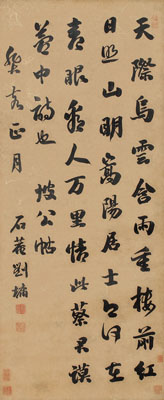 天際烏雲含雨重樓前紅
日照山明嵩陽居士今何在
青眼看人萬里情此蔡君謨
夢中詩也 坡公帖
癸亥正月
石菴劉墉